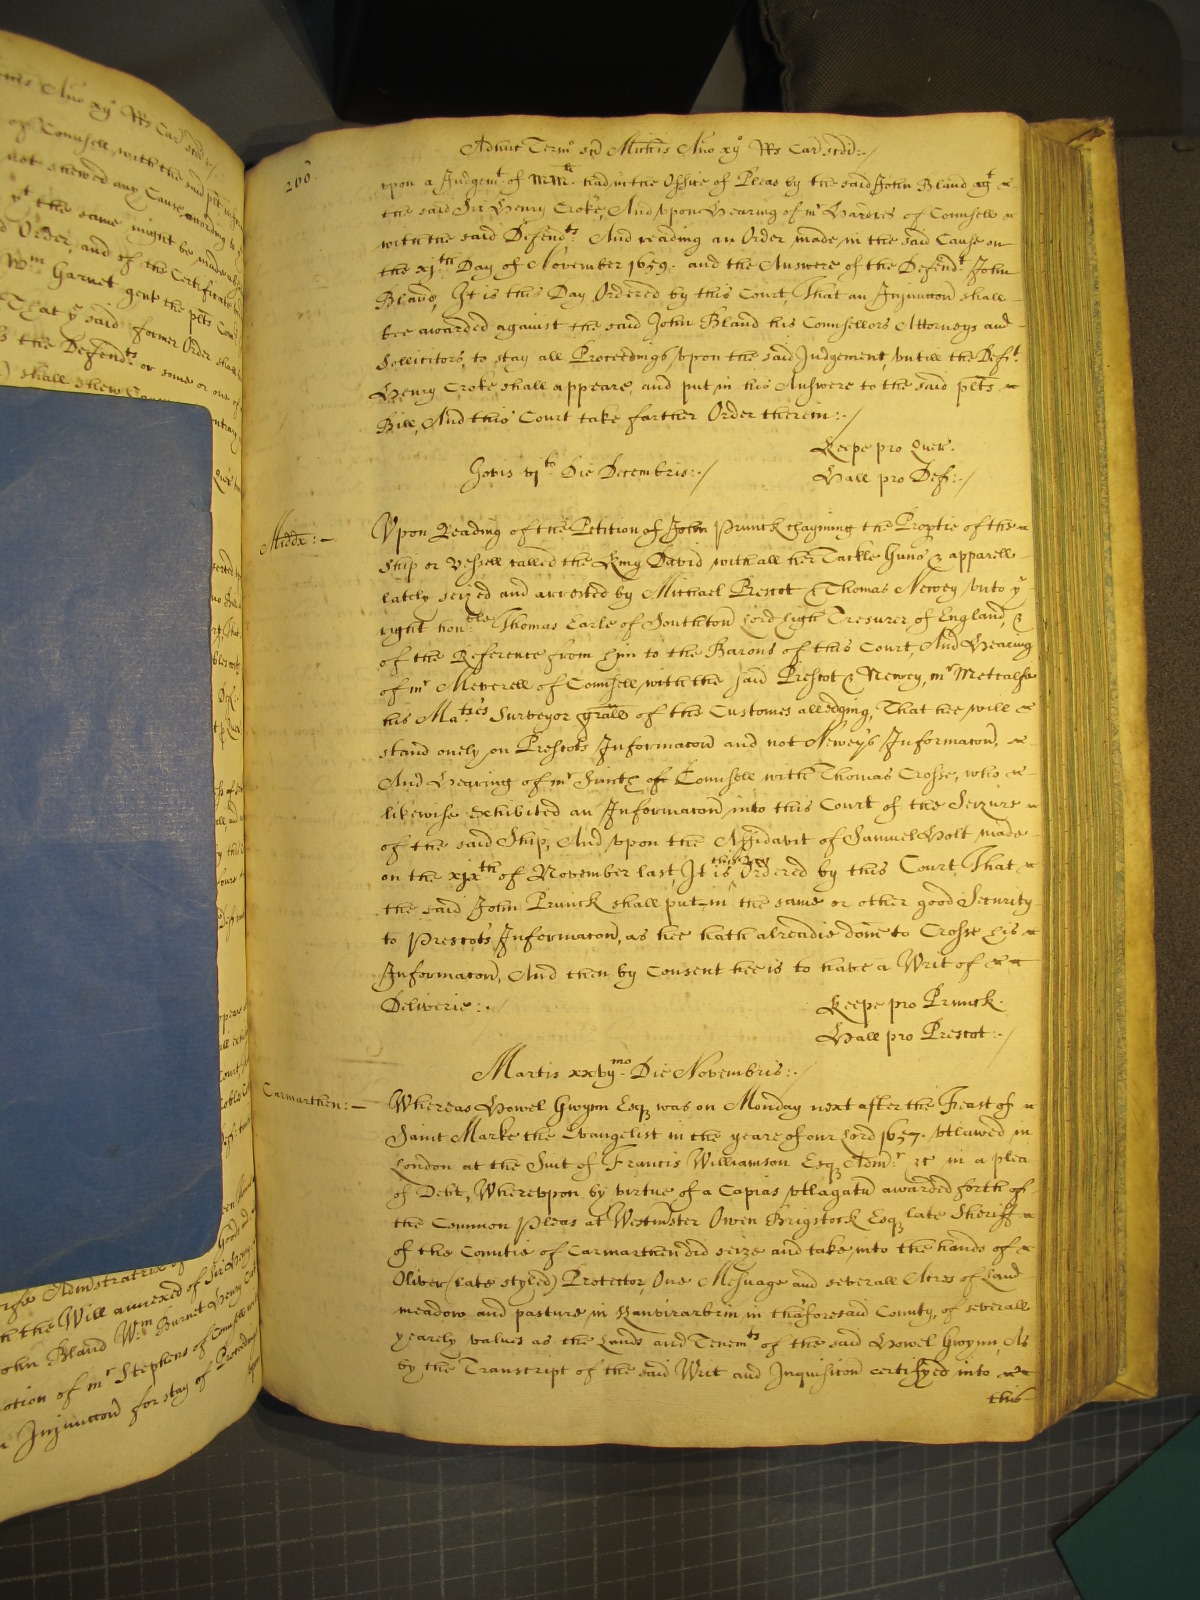 onis Ano xijo Rs Car scdi:/
of Counsell with the said plts
not shewed any Cause according to
yt the same might be made
Order, and of the Certificate
Wm Garnet gent the plts
That ye said former Order shall
the Defendts or some or one of
shall shew
Adhuc Termo sci Michis Ano xijo Rs Car scdi:/
200.
vpon a Judgemt of MMli had in the Office of Pleas by the said John Bland agt
the said Sir Henry Croke, And vpon Hearing of mr Hardres of Counsell
with the said Defendts And reading an Order made in the said Cause on
the xith Day of November 1659. and the Answere of the Defendt John
Bland, It is this Day Ordered by this Court That an Injunccon shall
bee awarded against the said John Bland his Counsellors Attorneys and
Sollicitors, to stay all Proceedings vpon the said Judgement, vntill the Deft
Henry Croke shall appeare, and put in his Answere to the said plts
Bill, And this Court take farther Order therein:/
Keepe pro Quer.
Jovis vjto Die Decembris:/
Hall pro Def:/
Middx:
Vpon Reading of the Petition of John Prunck clayming the Proptie of the
Ship or vessell called the King David with all her Tackle Guns & apparell
lately seized and arrested by Michael Prescot & Thomas Newey vnto ye
right honble Thomas Earle of Southton Lord high Tresurer of England, &
of the Reference from hjm to the Barons of this Court And Hearing
of mr Meverell of Counsell with the said Prescot & Newey, mr Metcalfe
his Maties Surveyor grall of the Customes alledging, That hee will
stand onely on Prescots Informacon and not Neweys Informacon,
And Hearing of mr Saintz of Counsell with Thomas Crosse, who
likewise exhibited an Informacon into this Court of the Seizure
of the said Ship, And vpon the Affidavit of Samuel Holt made
on the xixth of November last, It is this Day Ordered by this Court That
the said John Prunck shall put in the same or other good Security
to Prescots Informacon, as hee hath alreadie done to Crosse his
Informacon, And then by Consent hee is to have a Writ of
Deliverie:.
Keepe pro Prunck.
Hall pro Prescot:/
Martis xxvijmo Die Novembris:/
Carmarthen:
Whereas Howel Gwynn Esqr was on Monday next after the Feast of
Saint Marke the Evangelist in the yeare of our Lord 1657. vtlawed in
London at the Suit of Francis Williamson Esqr Admr &c in a plea
of Debt, Wherevpon by virtue of a Capias vtlagatu awarded forth of
the Common Pleas at Westmster Owen Brigstock Esqr late Sheriff
of the Countie of Carmarthen did seize and take into the hands of
Oliver (late styled) Protector, One Mesuage and severall Acres of Land
meadow and pasture in Lanvirarbrin in thaforesaid County, of severall
yearely values as the Lands and Tenemts of the said Howel Gwynn, As
by the Transcript of the said Writ and Inquisicon certifyed into
this
Admstratrix of
the Will annexed of Sir Henry
John Bland Wm Burnet Henry
mocion of mr Stephens of Counsell
Injunccon for stay of Proceedings